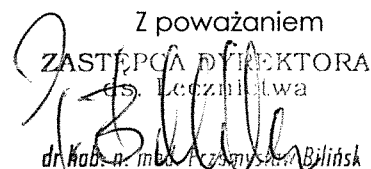 Z poważaniem
ZASTĘPCA DYREKTORA
ds. Lecznictwa
dr hab. n. med. Przemysław Bilińsk